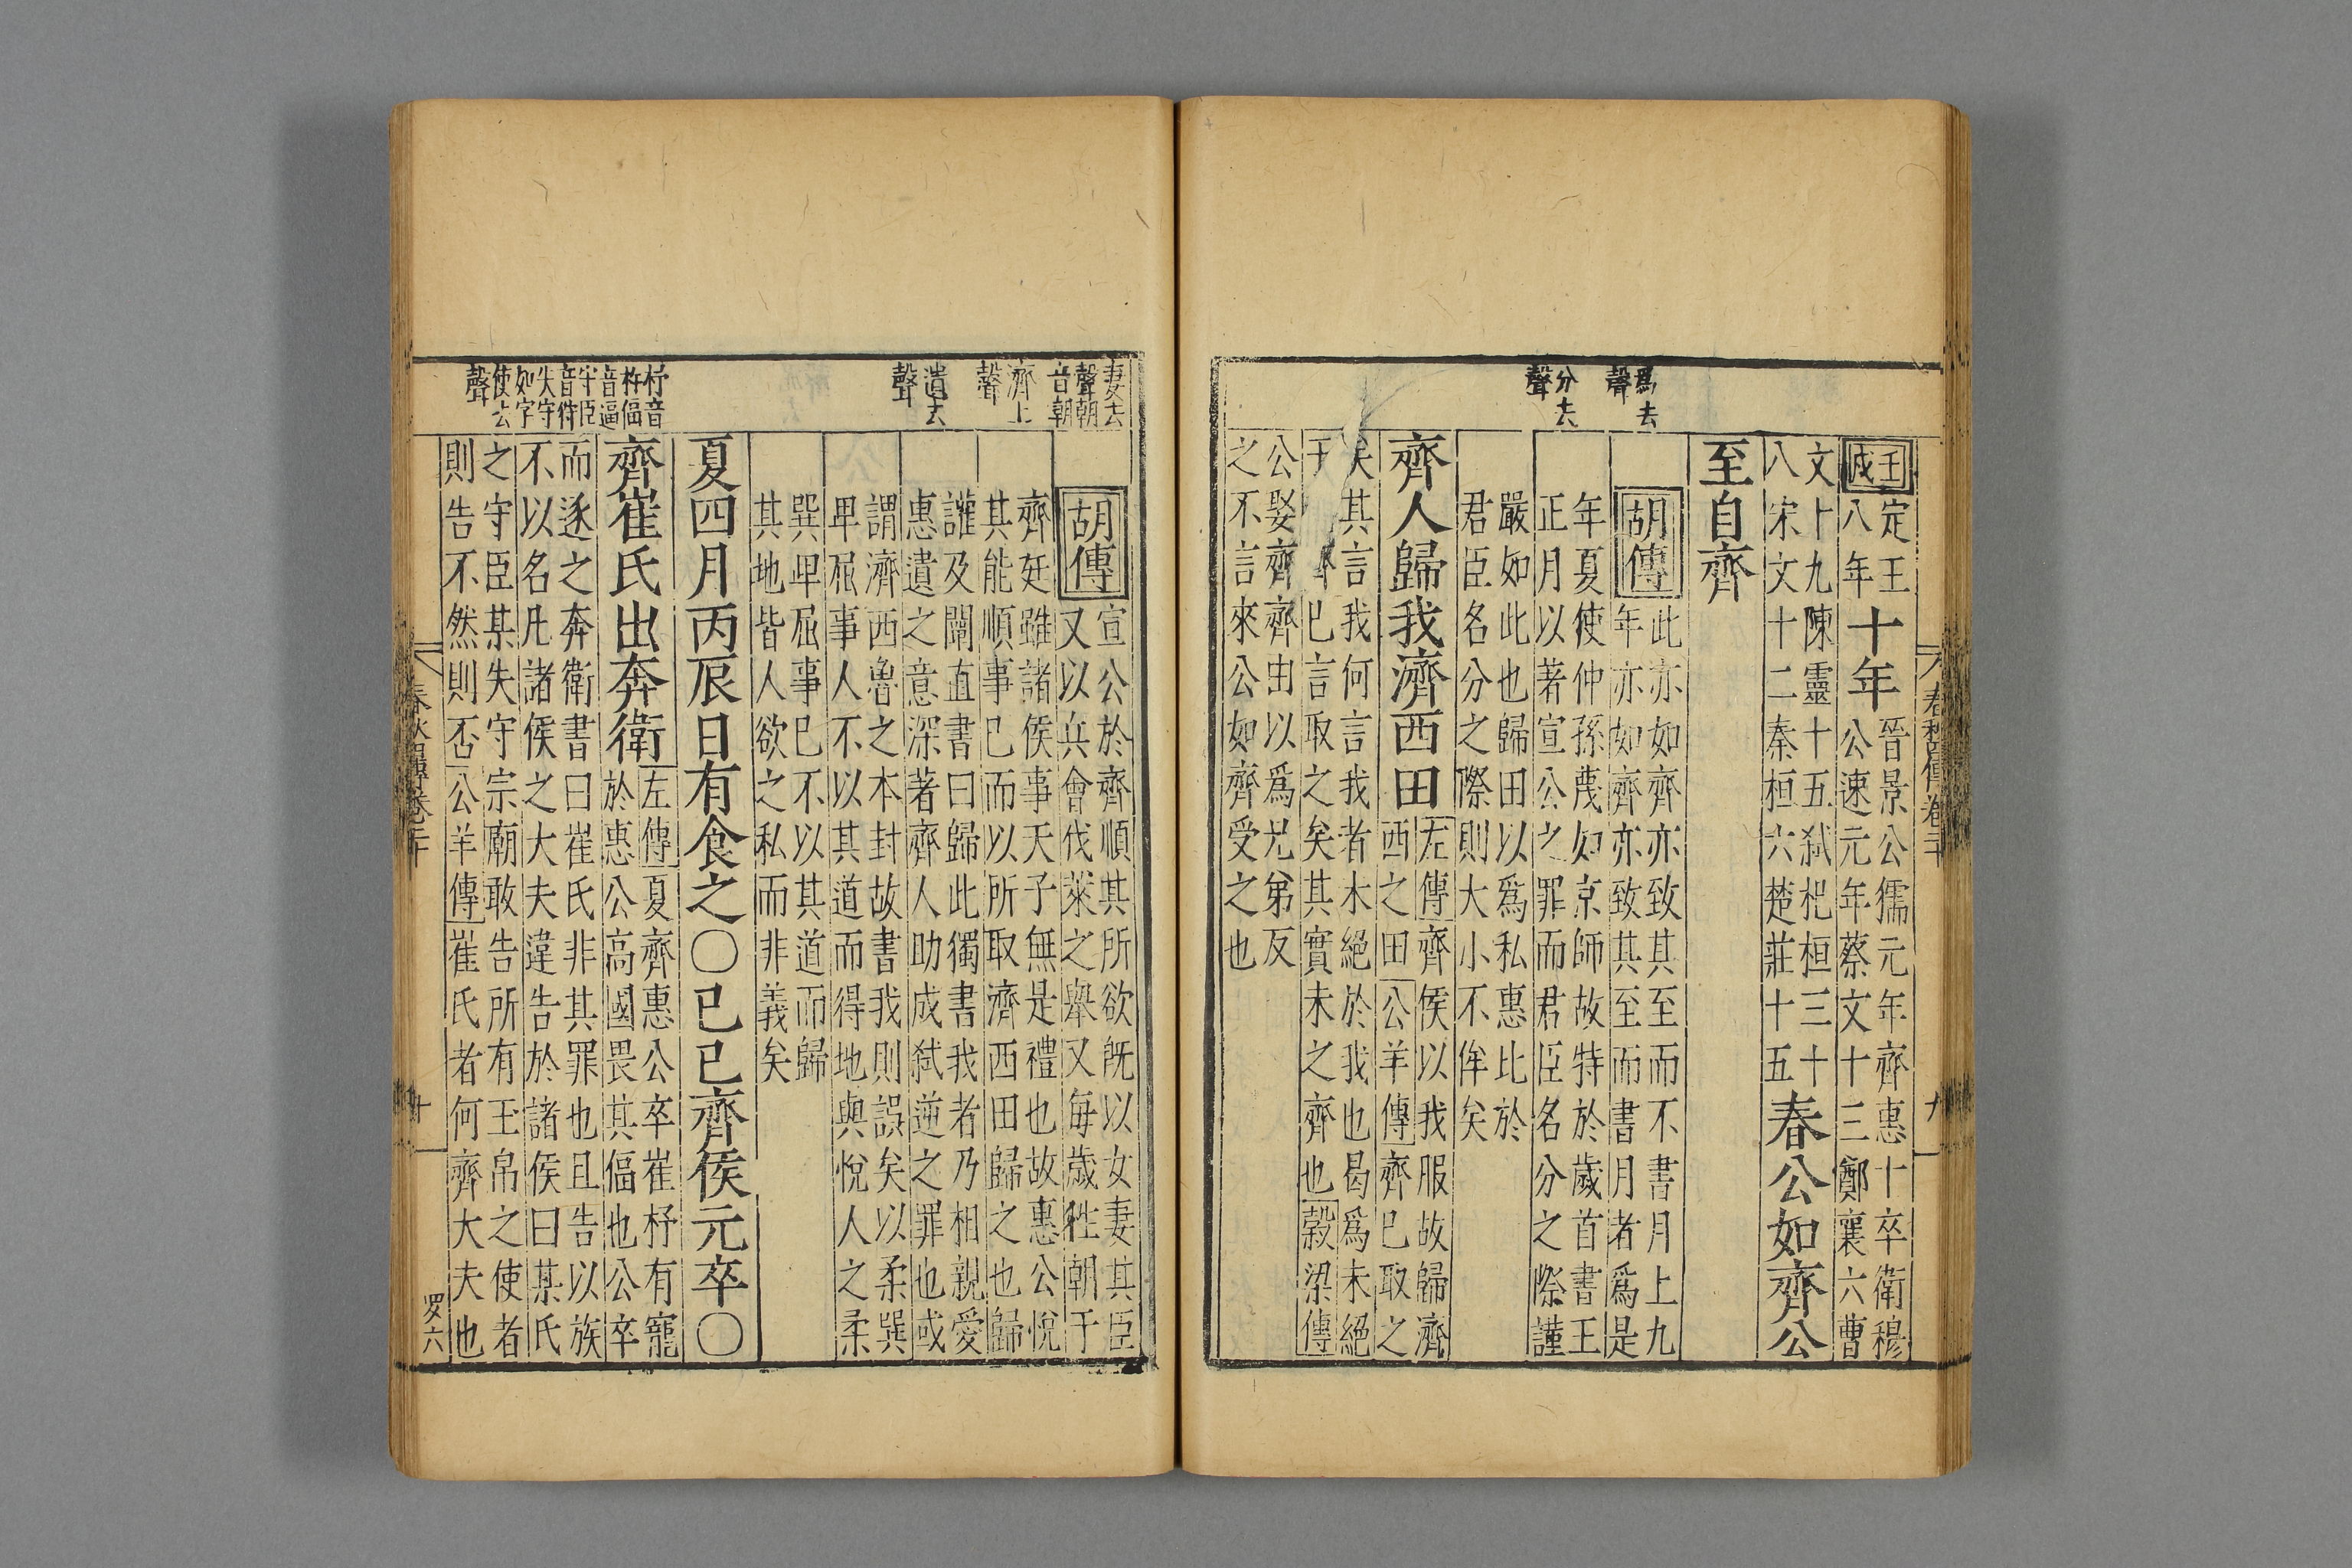 春秋四傳卷二十 九
爲去
聲
分去
聲
壬戌定王八年十年晉景公獳元年齊惠十卒衛穆
公速元年蔡文十三鄭襄六曹
文卜九陳靈十五弑杞桓三十
八宋文十二秦桓六楚莊十五春公如齊公
至自齊
胡傳此亦如齊亦致其至而不書月上九
年亦如齊亦致其至而書月者爲是
年夏使仲孫蔑如京師故特於歲首書王
正月以著宣公之罪而君臣名分之際謹
嚴如此也歸田以爲私惠比於
君臣名分之際則大小不侔矣
齊人歸我濟西田左傳齊侯以我服故歸濟
西之田公羊傳齊已取之
矣其言我何言我者未絕於我也曷爲未絕
于 已言取之矣其實未之齊也穀梁傳
公娶齊齊由以爲兄弟反
之不言來公如齊受之也
妻去
聲朝
音朝
濟上
聲
遺去
聲
杼音
杵偪
音逼
守臣
音狩
失守
如字
使去
聲
胡傳宣公於齊順其所欲旣以女妻其臣
又以兵會伐萊之舉又每歲往朝于
齊廷雖諸侯事天子無是禮也故惠公悅
其能順事已而以所取濟西田歸之也歸
讙及闡直書曰歸此獨書我者乃相親愛
惠遺之意深著齊人助成弑逆之罪也或
謂濟西魯之本封故書我則誤矣以柔巽
卑屈事人不以其道而得地與悅人之柔
巽卑屈事已不以其道而歸
其地皆人欲之私而非義矣
夏四月丙辰日有食之〇己巳齊侯元卒〇
齊崔氏出奔衛左傳夏齊惠公卒崔杼有寵
於惠公高國畏其偪也公卒
而逐之奔衛書曰崔氏非其罪也且告以族
不以名凡諸侯之大夫違告於諸侯曰某氏
之守臣某失守宗廟敢告所有玉帛之使者
則告不然則否公羊傳崔氏者何齊大夫也
春秋四傳卷二十 十